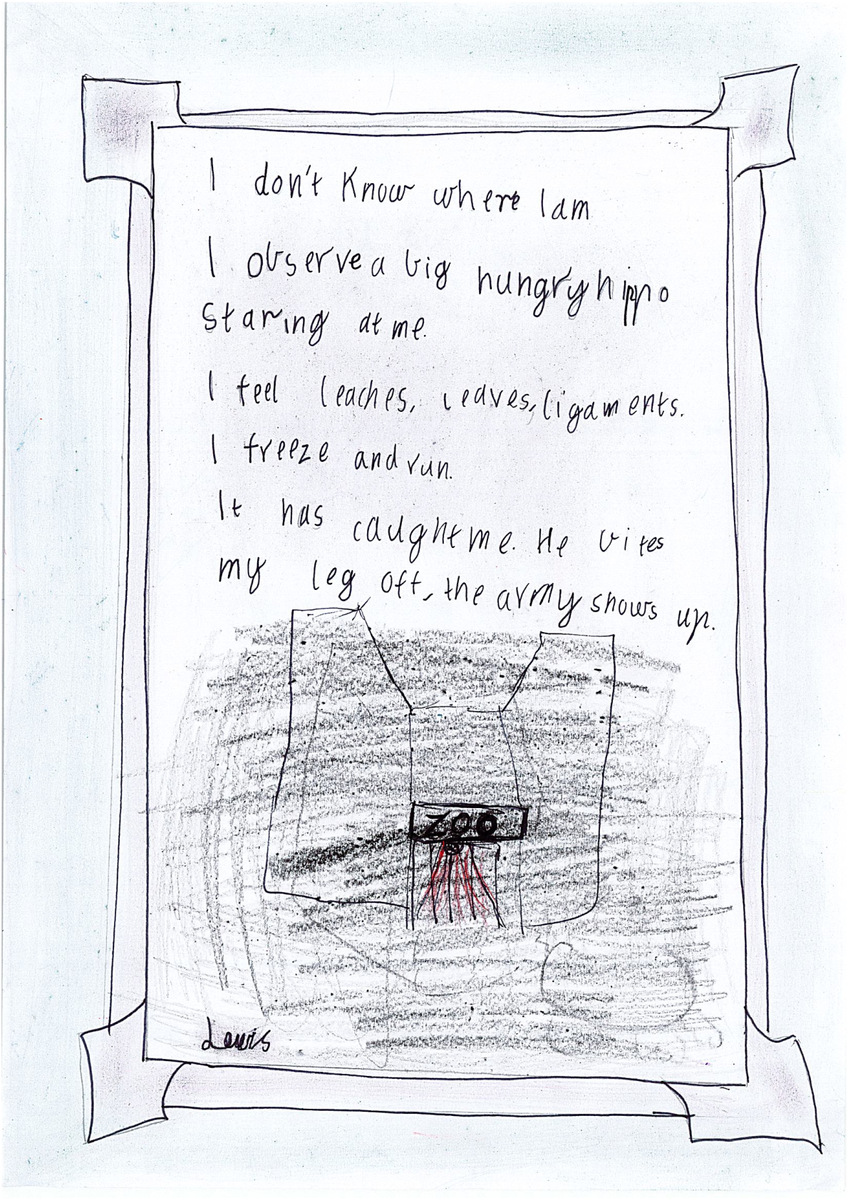 I don't know where I am
I observe a big hungry hippo
staring at me.
I feel leaches, leaves, ligaments.
I freeze and run.
It has caught me. He bites
my leg off, the army shows up.
ZOO
Lewis